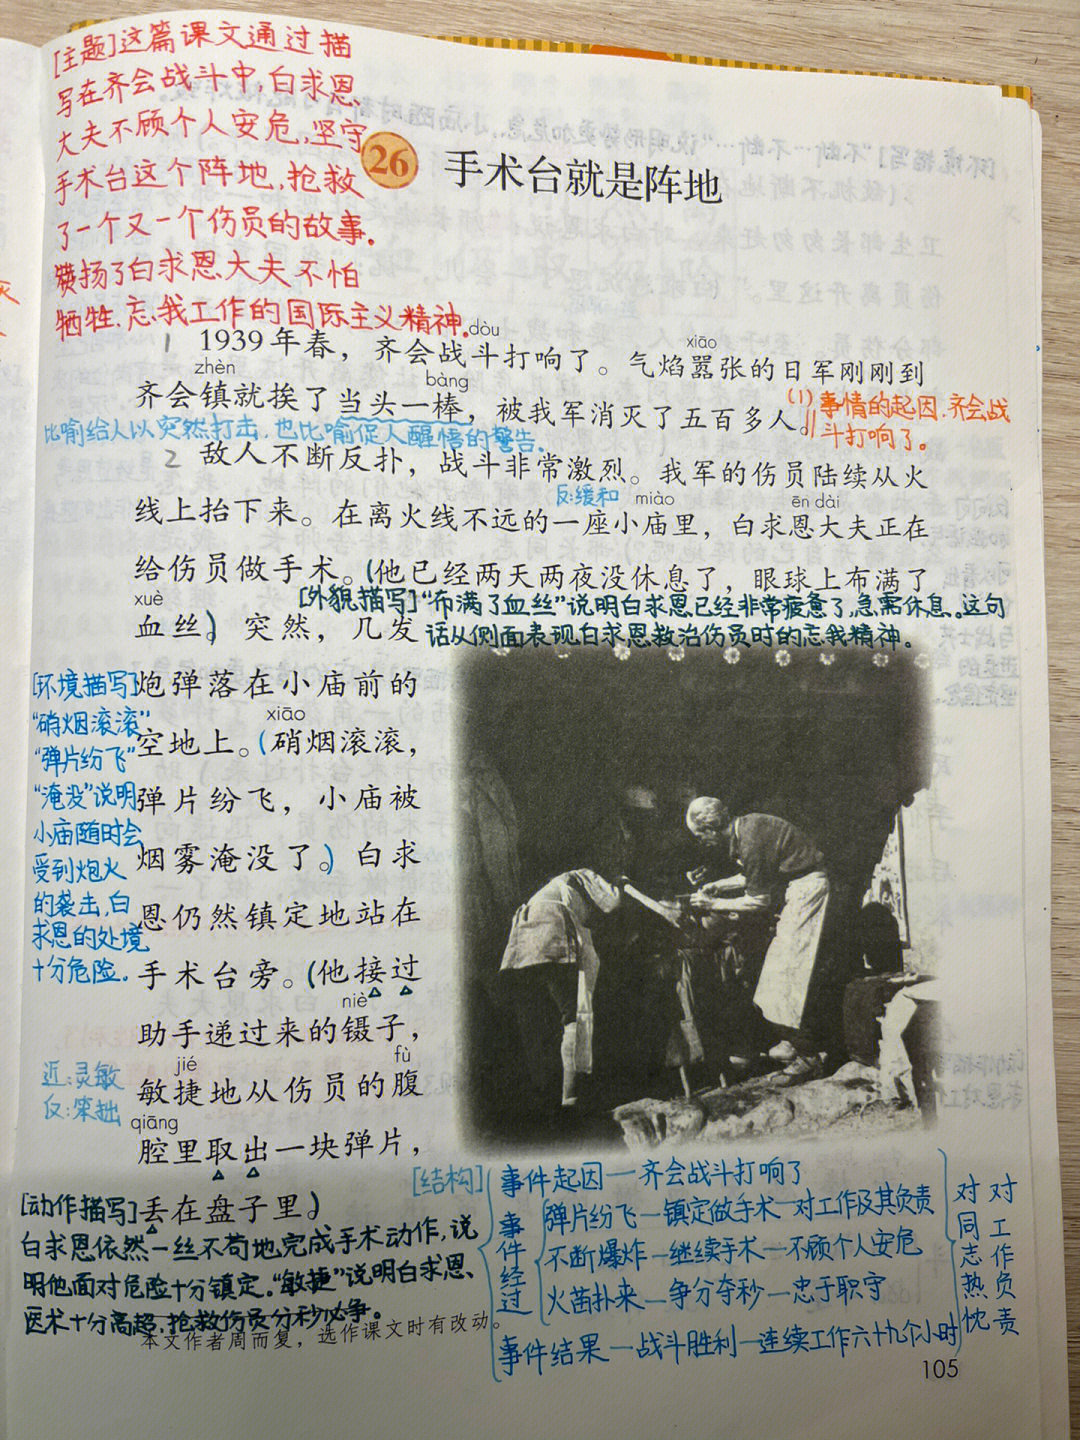 [主题]这篇课文通过描
写在齐会战斗中,白求恩
大夫不顾个人安危,坚守
手术台这个阵地,抢救
了一个又一个伤员的故事.
赞扬了白求恩大夫不怕
牺牲、忘我工作的国际主义精神.
26 手术台就是阵地
dòu
1 1939年春，齐会战斗打响了。气焰嚣张的日军刚刚到
xiāo
zhèn bàng
齐会镇就挨了当头一棒，被我军消灭了五百多人。
(1)事情的起因.齐会战
斗打响了。
比喻给人以突然打击,也比喻促人醒悟的警告.
2 敌人不断反扑，战斗非常激烈。我军的伤员陆续从火
反:缓和 miào ēn dài
线上抬下来。在离火线不远的一座小庙里，白求恩大夫正在
给伤员做手术。(他已经两天两夜没休息了，眼球上布满了
xuè
[外貌描写]“布满了血丝”说明白求恩已经非常疲惫了,急需休息.这句
话从侧面表现白求恩救治伤员时的忘我精神。
血丝。)突然，几发
炮弹落在小庙前的
xiāo
空地上。(硝烟滚滚，
弹片纷飞，小庙被
烟雾淹没了。)白求
恩仍然镇定地站在
手术台旁。(他接过
niè
助手递过来的镊子，
jié fù
敏捷地从伤员的腹
qiāng
腔里取出一块弹片，
丢在盘子里。)
[环境描写]
“硝烟滚滚”
“弹片纷飞”
“淹没”说明
小庙随时会
受到炮火
的袭击,白
求恩的处境
十分危险.
近:灵敏
反:笨拙
[动作描写]
白求恩依然一丝不苟地完成手术动作,说
明他面对危险十分镇定.“敏捷”说明白求恩
医术十分高超,抢救伤员分秒必争。
本文作者周而复，选作课文时有改动。
[结构]
事件起因—齐会战斗打响了
事件经过
弹片纷飞—镇定做手术—对工作及其负责
不断爆炸—继续手术—不顾个人安危
火苗扑来—争分夺秒—忠于职守
事件结果—战斗胜利—连续工作六十九个小时
对同志热忱
对工作负责
105